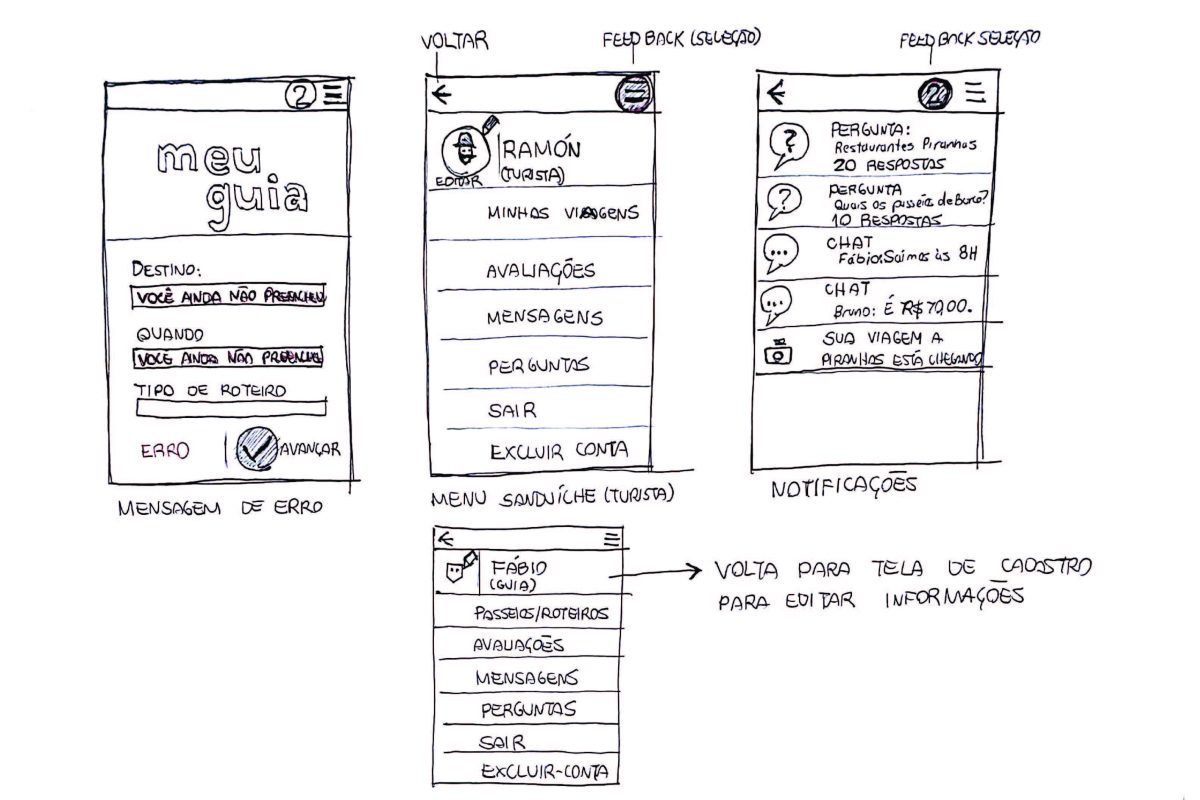 VOLTAR
FEEDBACK (SELEÇÃO)
FEEDBACK SELEÇÃO
2
meu
guia
DESTINO:
VOCÊ AINDA NÃO PREENCHEU
QUANDO
VOCE AINDA NÃO PREENCHE
TIPO DE ROTEIRO
ERRO
AVANÇAR
MENSAGEM DE ERRO
RAMÓN
(TURISTA)
EDITAR
MINHAS VIAGENS
AVALIAÇÕES
MENSAGENS
PERGUNTAS
SAIR
EXCLUIR CONTA
MENU SANDUÍCHE (TURISTA)
2
?
PERGUNTA:
Restaurantes Piranhas
20 RESPOSTAS
?
PERGUNTA
Quais os passeios de Barco?
10 RESPOSTAS
...
CHAT
Fábio: Saimos às 8H
...
CHAT
Bruno: É R$70,00.
SUA VIAGEM A
PIRANHAS ESTÁ CHEGANDO
NOTIFICAÇÕES
FÁBIO
(GUIA)
PASSEIOS/ROTEIROS
AVALIAÇÕES
MENSAGENS
PERGUNTAS
SAIR
EXCLUIR-CONTA
VOLTA PARA TELA DE CADASTRO
PARA EDITAR INFORMAÇÕES